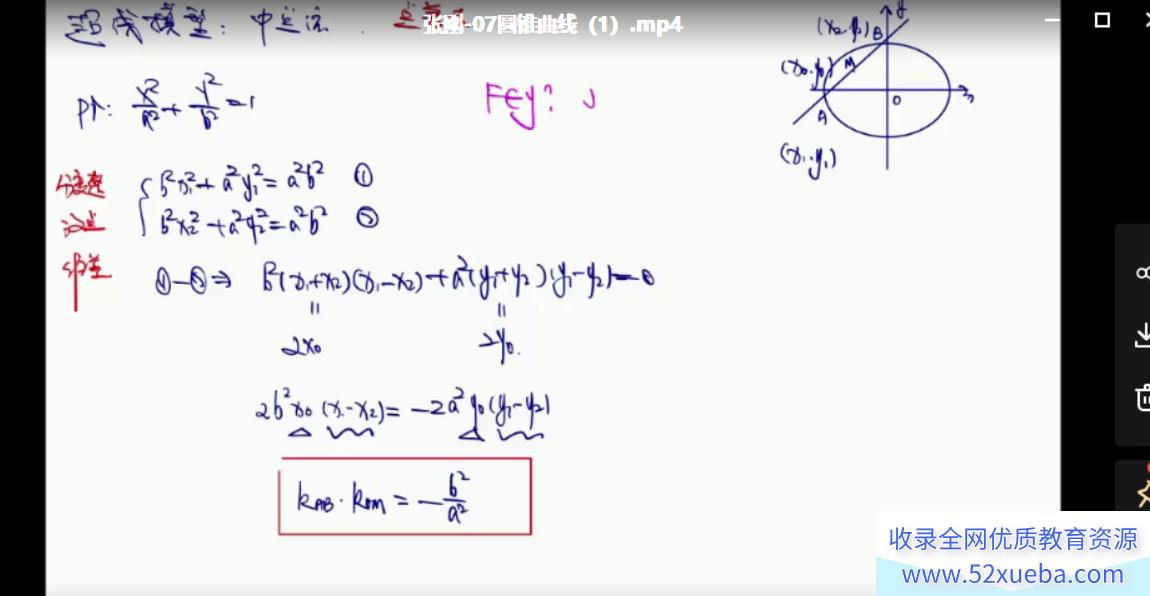 模型：中点法
张刚-07圆锥曲线（1）.mp4
pf: x²/a² + y²/b² = 1
(x₂,y₂) B
y
(x₀,y₀) M
x
O
A
(x₁,y₁)
设点
b²x₁² + a²y₁² = a²b² ①
b²x₂² + a²y₂² = a²b² ②
作差
①-②⇒ b²(x₁+x₂)(x₁-x₂)+a²(y₁+y₂)(y₁-y₂)=0
2x₀ 2y₀.
2b²x₀(x₁-x₂)= -2a²y₀(y₁-y₂)
k_AB · k_OM = -b²/a²
收录全网优质教育资源
www.52xueba.com